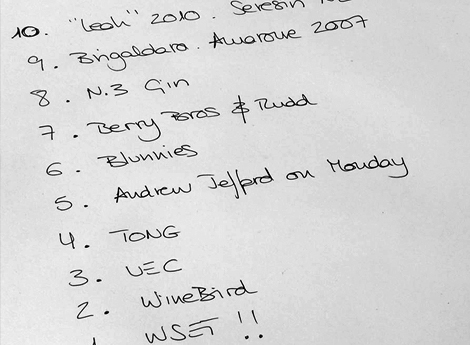 10. "Leah" 2010. Seresin
9. Brigaldara. Amarone 2007
8. N.3 Gin
7. Berry Bros & Rudd
6. Blunnies
5. Andrew Jefford on Monday
4. TONG
3. VEC
2. WineBird
WSET !!